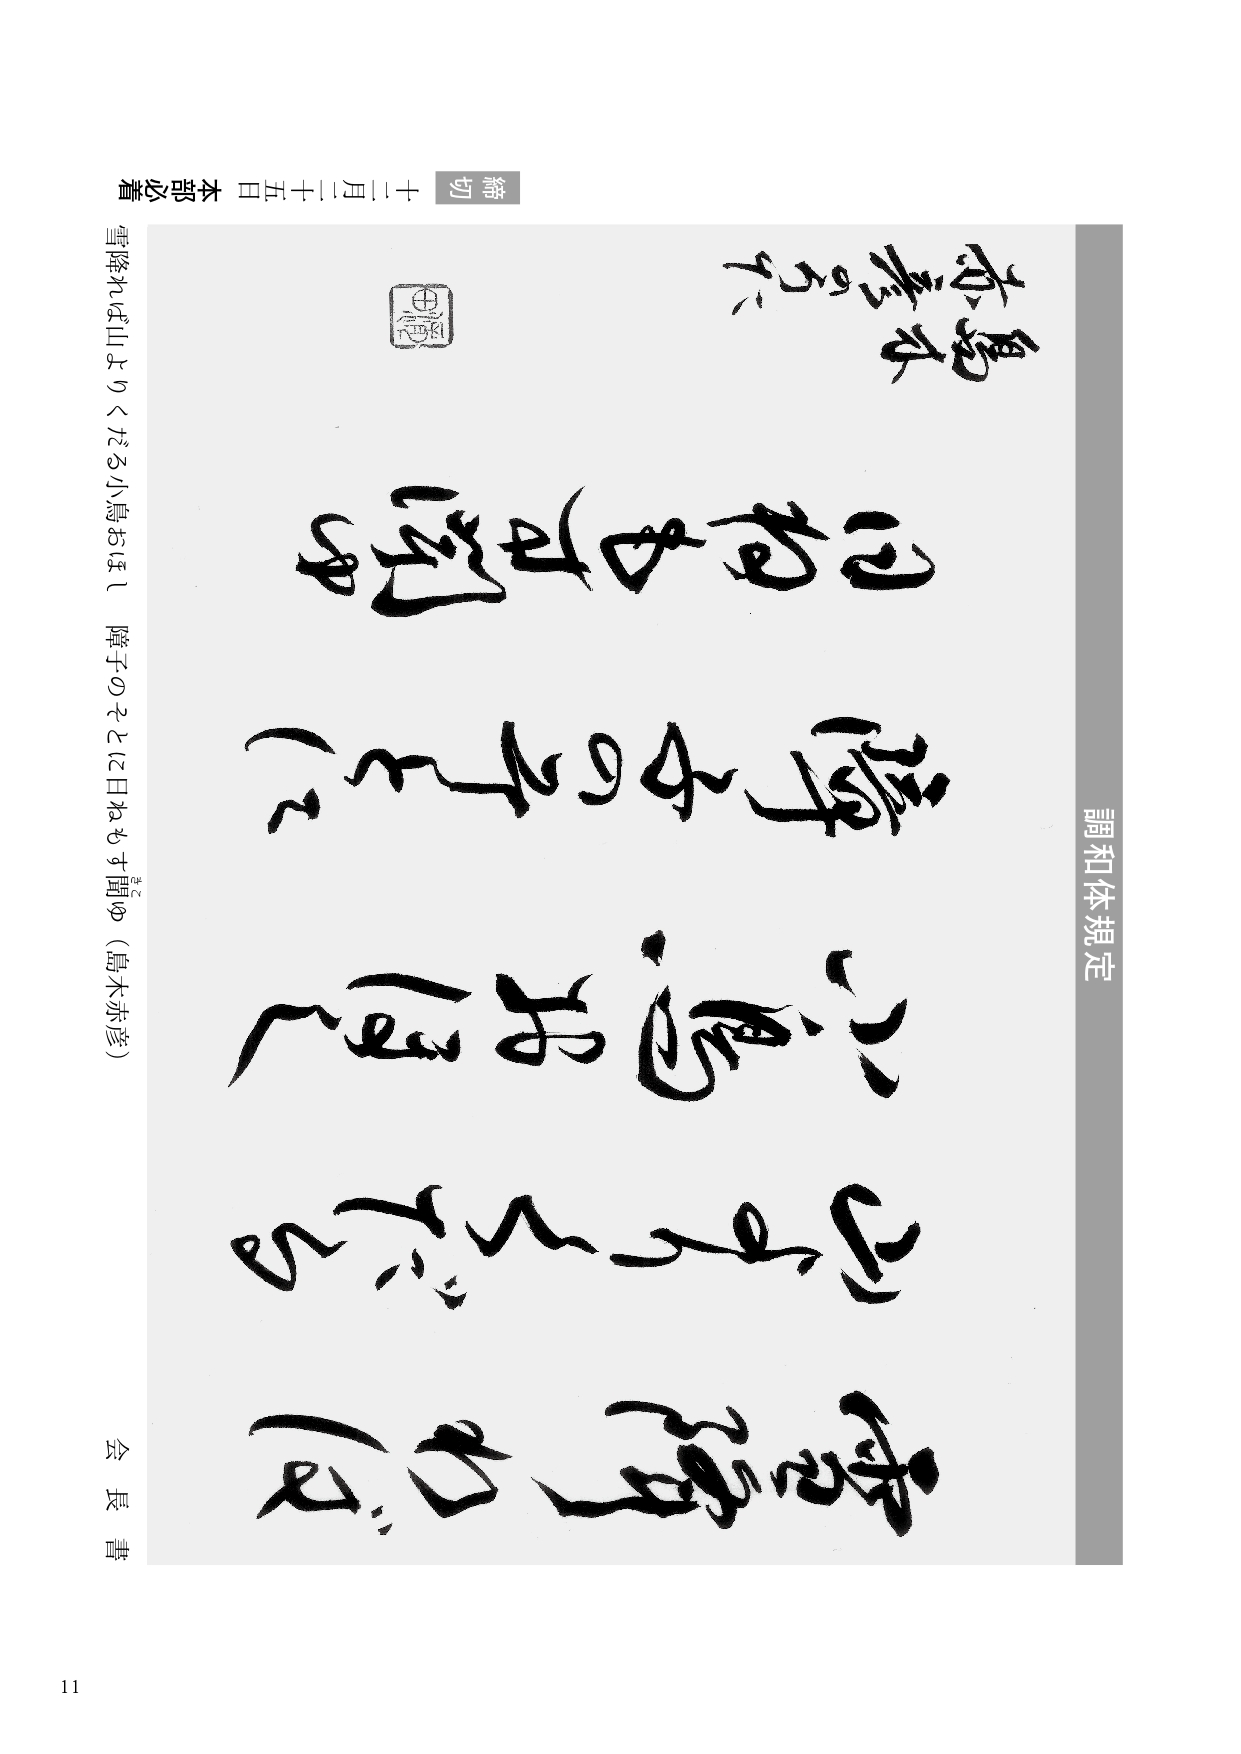 調和体規定
雪降れば
山よりくだる
小鳥おほし
障子のそとに
日ねもす聞ゆ
島木
赤彦のうた
締切 十二月二十五日 本部必着
雪降れば山よりくだる小鳥おほし 障子のそとに日ねもす聞ゆ（島木赤彦）
きこ
会長書
11